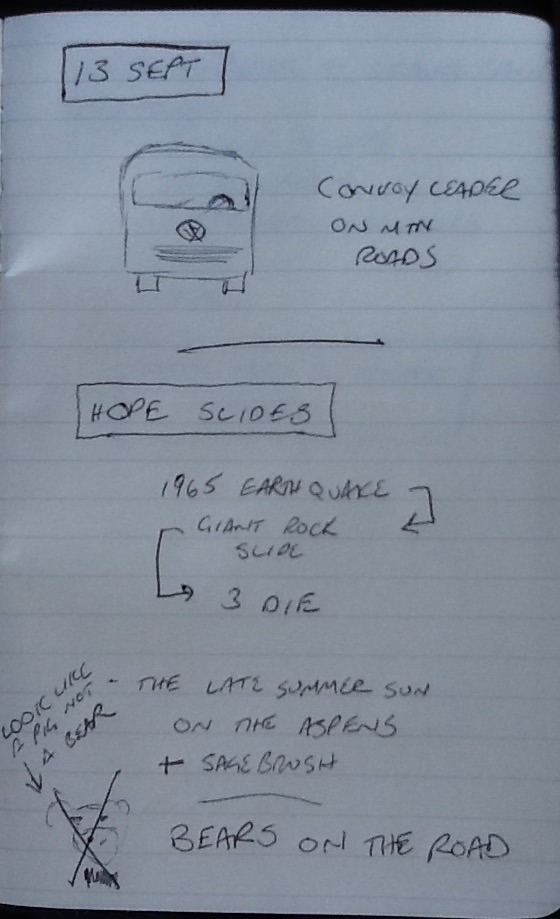 13 SEPT
CONVOY LEADER
ON MTN
ROADS
HOPE SLIDES
1965 EARTHQUAKE
GIANT ROCK
SLIDE
3 DIE
LOOK LIKE
A PIG NOT
A BEAR
- THE LATE SUMMER SUN
ON THE ASPENS
+ SAGEBRUSH
BEARS ON THE ROAD